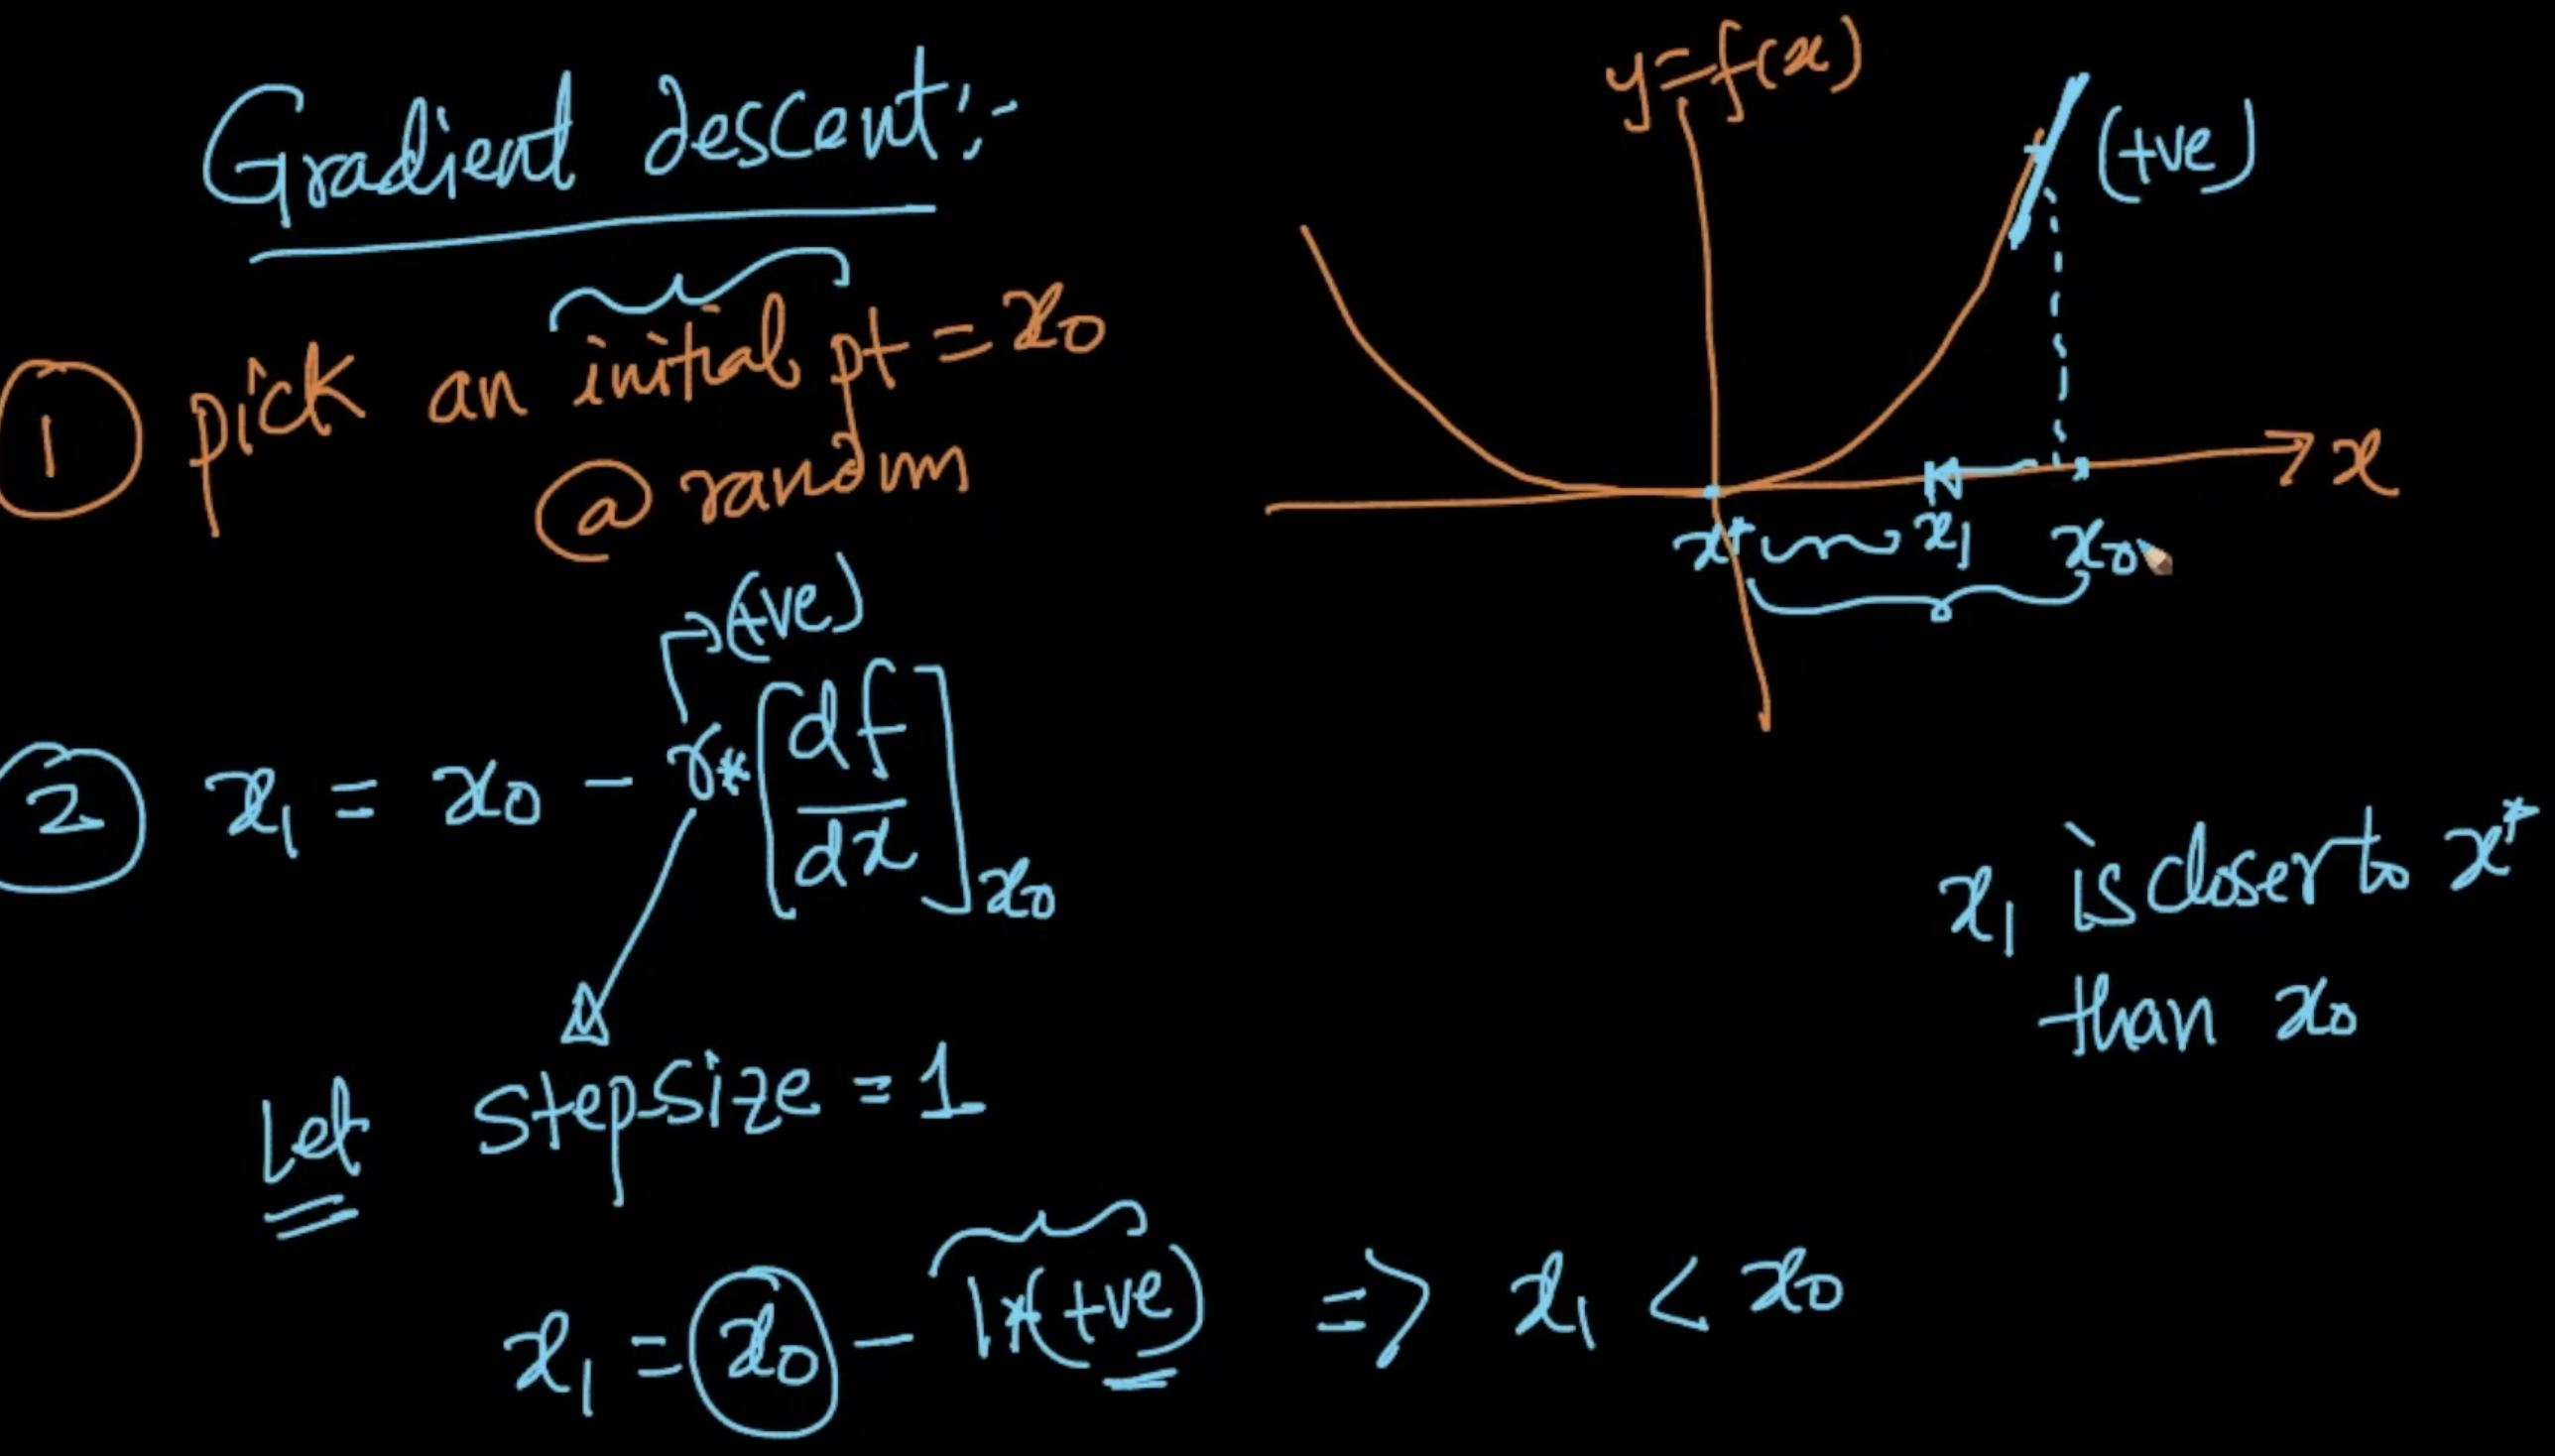 Gradient descent:-
① pick an initial pt = x₀
@ random
(+ve)
② x₁ = x₀ - r* [df/dx]x₀
Let stepsize = 1
x₁ = x₀ - 1*(+ve) => x₁ < x₀
y=f(x)
(+ve)
x
x* x₁ x₀
x₁ is closer to x*
than x₀